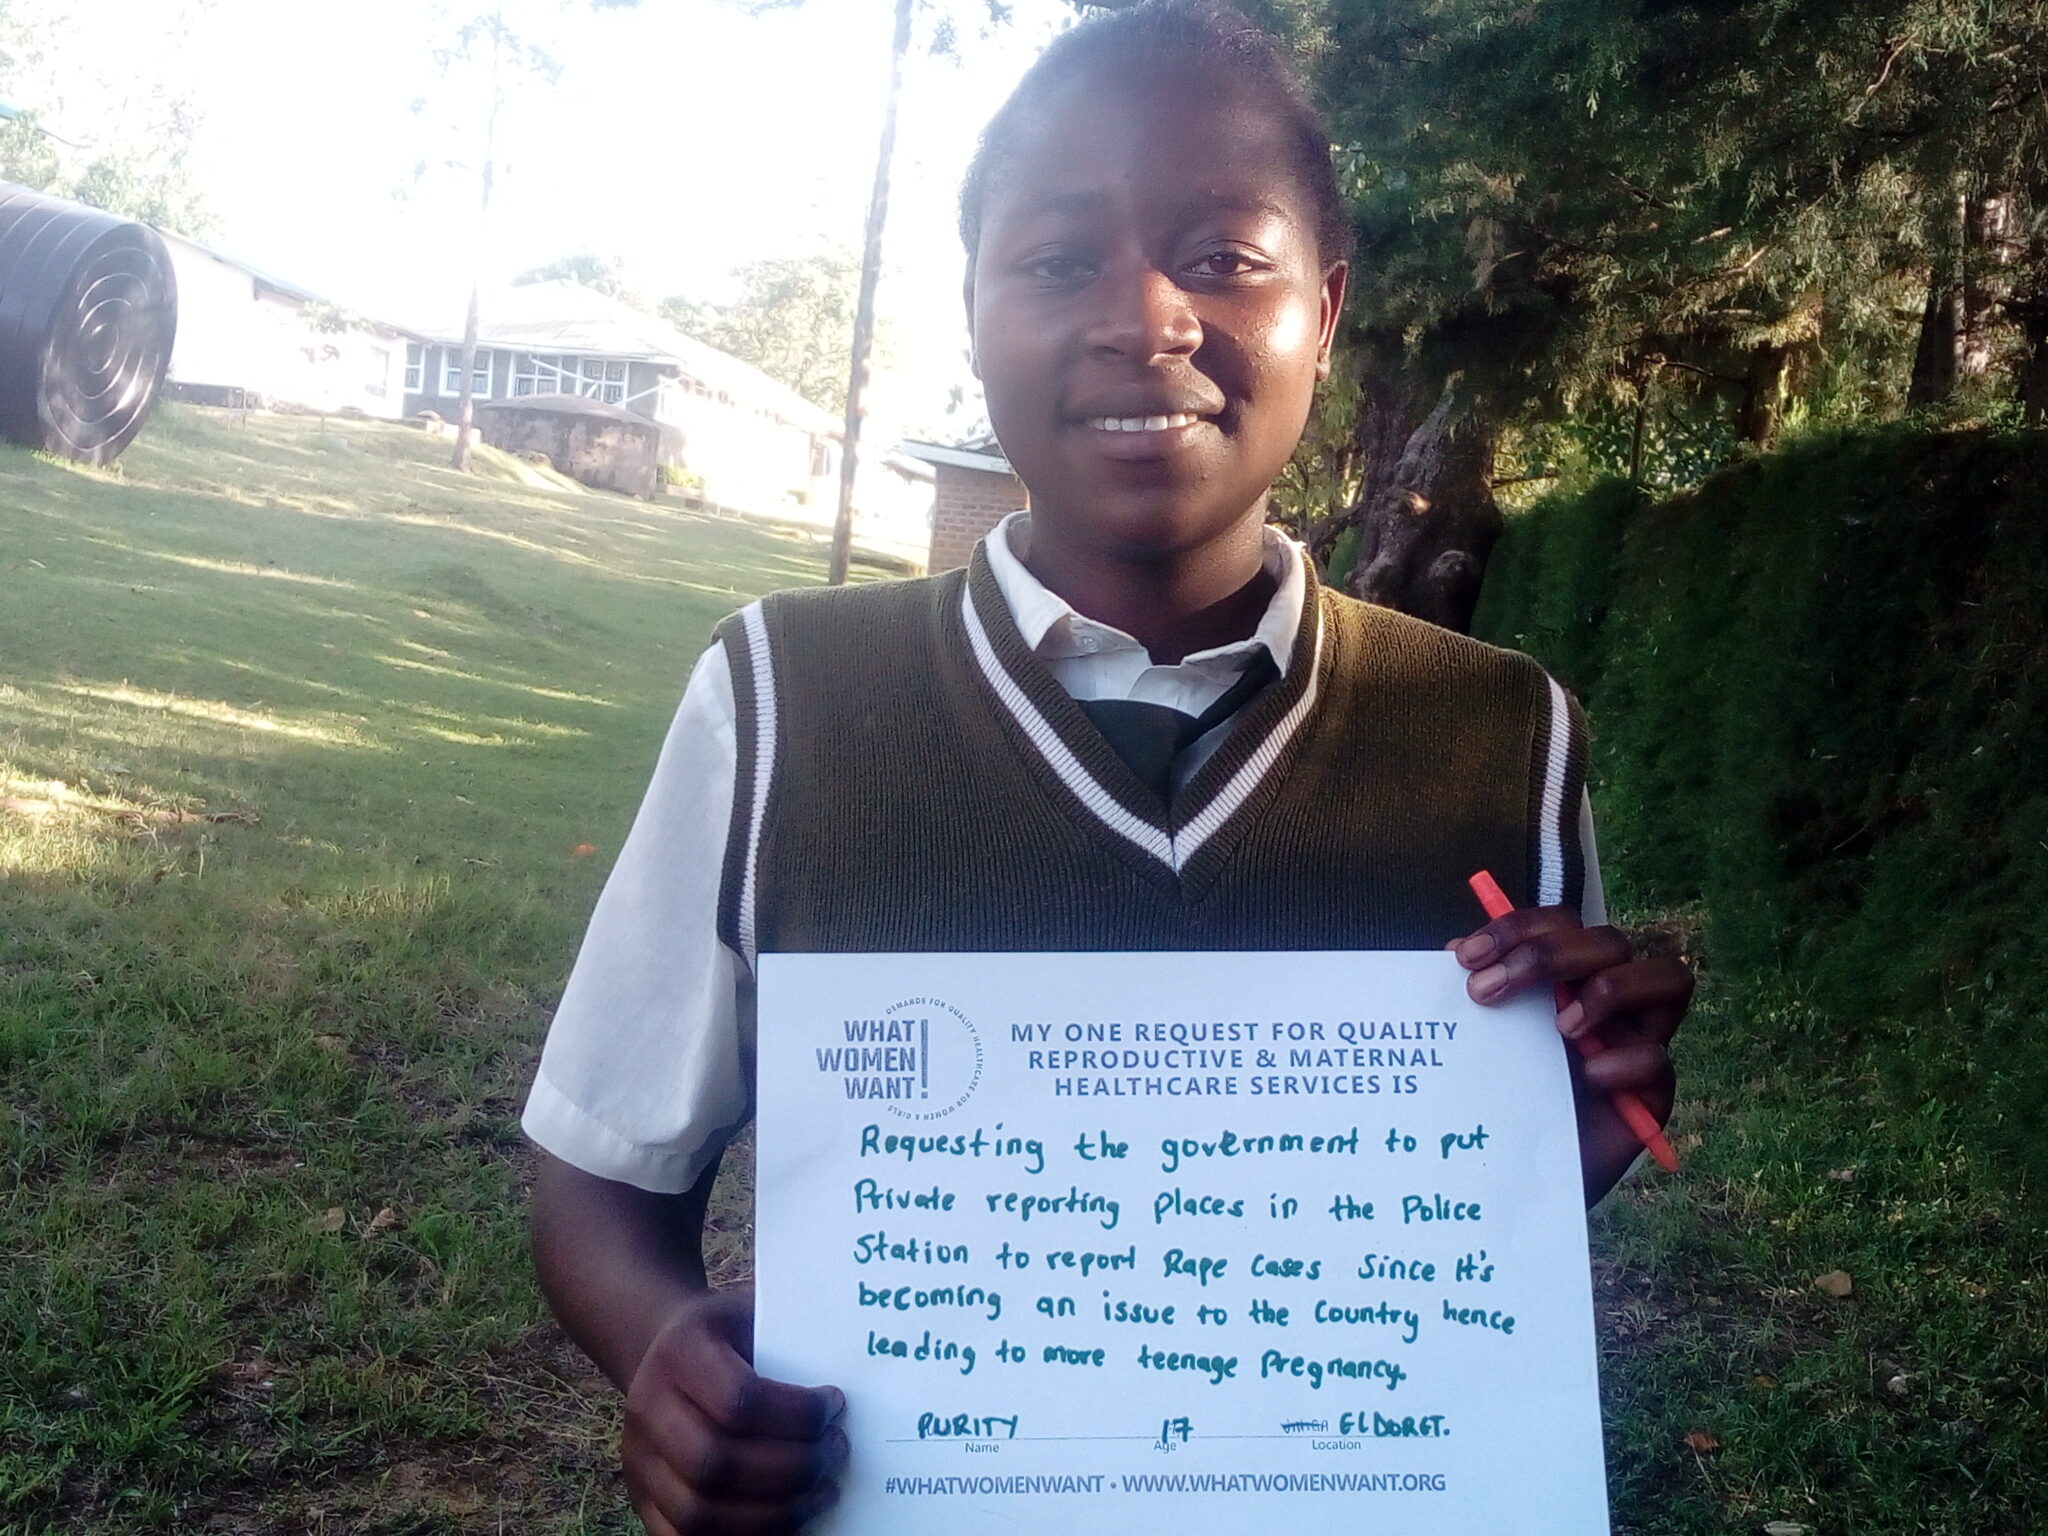 WHAT
WOMEN
WANT!
DEMANDS FOR QUALITY HEALTHCARE FOR WOMEN & GIRLS
MY ONE REQUEST FOR QUALITY
REPRODUCTIVE & MATERNAL
HEALTHCARE SERVICES IS
Requesting the government to put
Private reporting places in the Police
Station to report Rape cases since it's
becoming an issue to the country hence
leading to more teenage pregnancy.
PURITY 17 ELDORET.
Name Age Location
#WHATWOMENWANT • WWW.WHATWOMENWANT.ORG